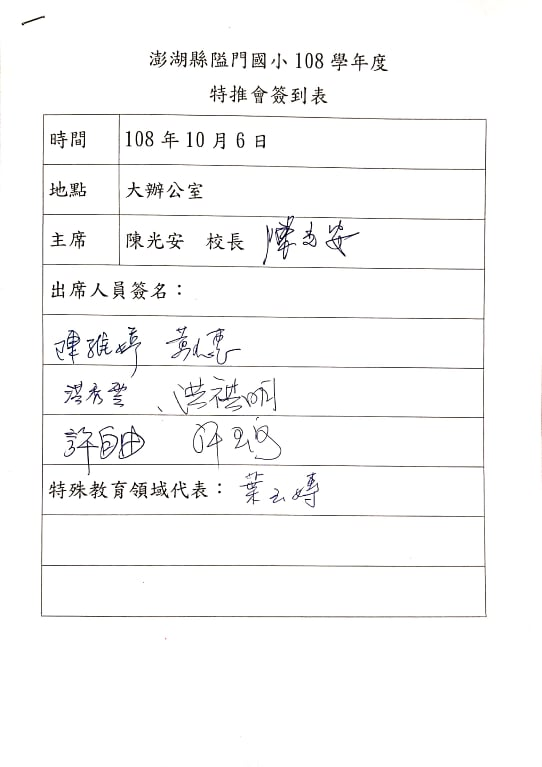 澎湖縣隘門國小 108 學年度
特推會簽到表
時間 108 年 10 月 6 日
地點 大辦公室
主席 陳光安 校長 陳光安
出席人員簽名：
陳維婷 黃
洪秀 、洪祺明
許自由 許玉
特殊教育領域代表： 葉玉